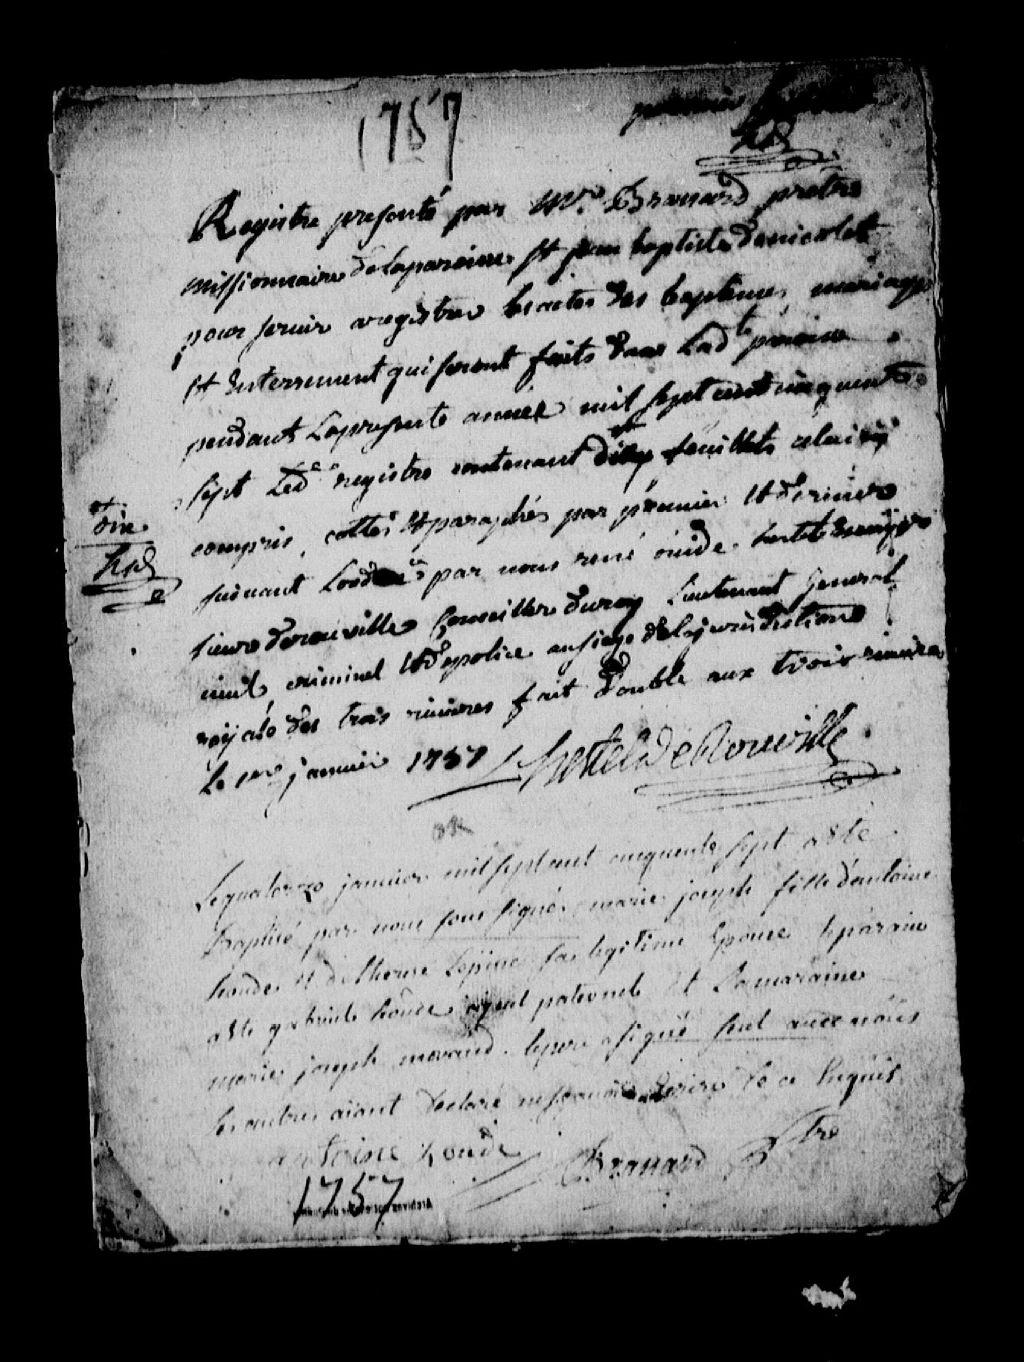 1757
premier
Registre presenté par Mre. Brassard prêtre
missionnaire de la paroisse St jean baptiste de nicolet
pour servir a registrer les actes des baptemes, mariages
Et Enterrement qui seront faits dans Lad.te paroisse
pendant La presente année mil sept cent cinquante
sept Led. registre contenant dix feuillets celui cy
dix
compris, cottés Et paraphés par premier Et dernier
suivant Lord.ce par nous rené ovide hertel Ecuyer
sieur de rouville Conseiller du roy Lieutenant General
civil criminel Et de police au siege de la jurisdiction
royale des trois rivieres fait double aux trois rivieres
Le 1er janvier 1757 hertel de Rouville
Le quatorze janvier mil sept cent cinquante sept a Eté
Baptisé par nous sous signés, marie joseph fille d'antoine
houde Et de therese Lepine sa legitime Epouse le parain
a Eté gabriele houde ayeul paternel Et La maraine
marie joseph le pere a signé seul avec nous
Les autres aiant declaré ne scavoir Ecrire de ce Enquis
antoine houde Brassard Ptre
1757